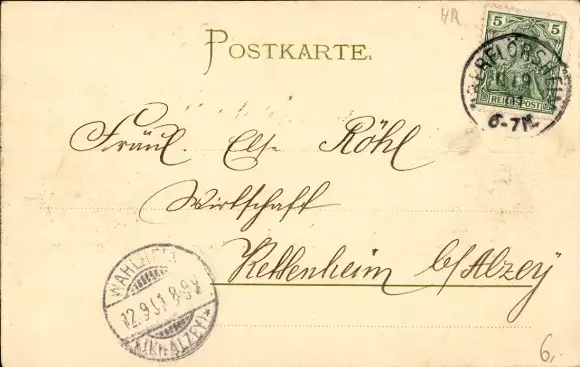 HR
POSTKARTE.
5 5
REICHSPOST
OBERFLÖRSHEIM
6-7N.
Fräul. Else Röhl
Wirtschaft
Kettenheim b/Alzey
WAHLHEIM
12.9.01 8-9V
(KR. ALZEY)
6,-